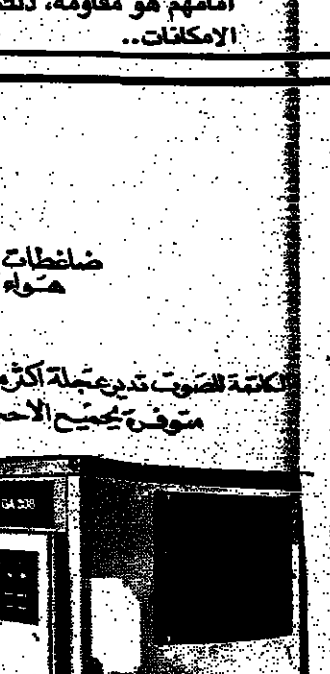 أمامهم هو مقاومة، ذلك
الامكانات..
ضاغطات
هواء
الكاتمة للصوت تدير عجلة أكثر
متوفرة بجميع الاحج
GA 208